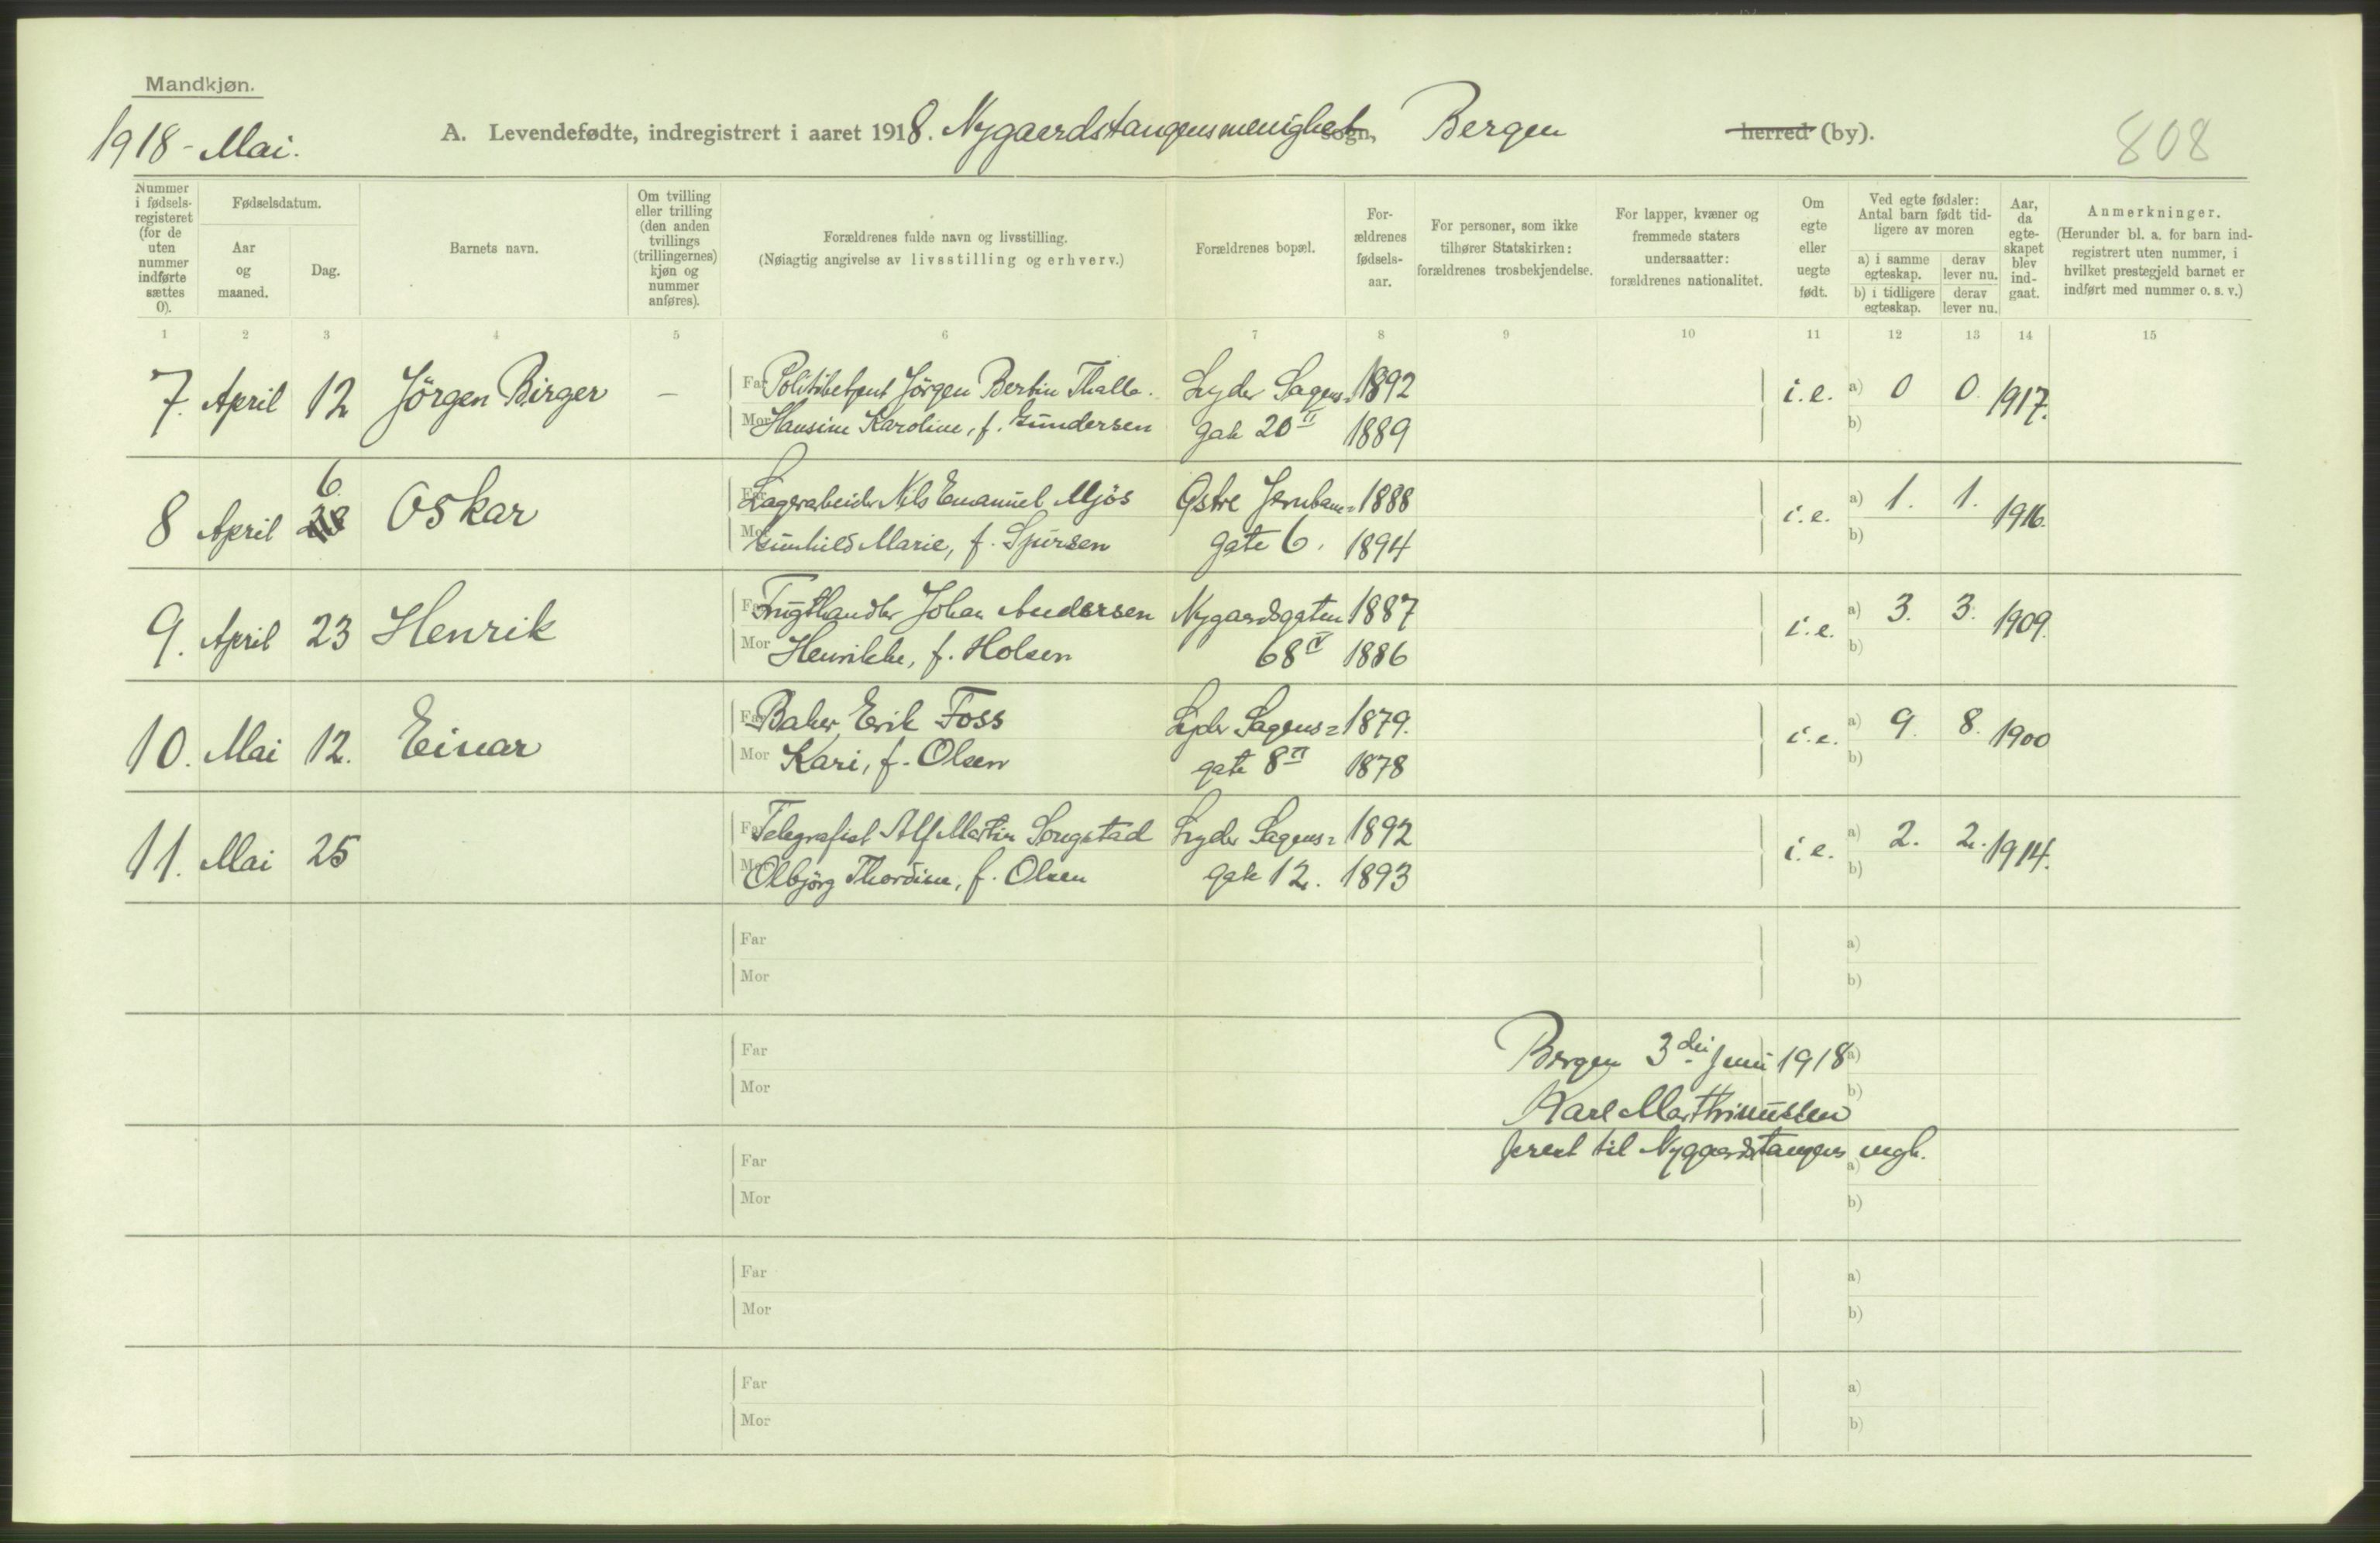 Mandkjøn.
1918 - Mai.
A. Levendefødte, indregistrert i aaret 1918. Nygaardstangens menighet sogn, Bergen herred (by).
808
Nummer i fødsels-registeret (for de uten nummer indførte sættes 0).
Fødselsdatum.
Aar og maaned.
Dag.
Barnets navn.
Om tvilling eller trilling (den anden tvillings (trillingernes) kjøn og nummer anføres).
Forældrenes fulde navn og livsstilling.
(Nøiagtig angivelse av livsstilling og erhverv.)
Forældrenes bopæl.
For-ældrenes fødsels-aar.
For personer, som ikke tilhører Statskirken: forældrenes trosbekjendelse.
For lapper, kvæner og fremmede staters undersaatter: forældrenes nationalitet.
Om egte eller uegte født.
Ved egte fødsler: Antal barn født tid-ligere av moren
a) i samme egteskap.
derav lever nu.
b) i tidligere egteskap.
derav lever nu.
Aar, da egte-skapet blev ind-gaat.
Anmerkninger.
(Herunder bl. a. for barn ind-registrert uten nummer, i hvilket prestegjeld barnet er indført med nummer o. s. v.)
1 2 3 4 5 6 7 8 9 10 11 12 13 14 15
7. April 12 Jörgen Birger — Far Politibetjent Jörgen Bertin Thalle. Lyder Sagens= 1892 i.e. a) 0 0. 1917.
Mor Hansine Karoline, f. Gundersen gate 20 II 1889 b)
8 April 28 6. Oskar Far Lagerarbeider Nils Emanuel Mjös Østre Jernbane= 1888 i.e. a) 1. 1. 1916.
Mor Gunhild Marie, f. Sjursen gate 6. 1894 b)
9. April 23 Henrik Far Frugthandler Johan Andersen Nygaardsgaten 1887 i.e. a) 3. 3. 1909.
Mor Henrikke, f. Holsen 68 IV 1886 b)
10. Mai 12. Einar Far Baker, Erik Foss Lyder Sagens= 1879. i.e. a) 9. 8. 1900
Mor Kari, f. Olsen gate 8 II 1878 b)
11. Mai 25 Far Telegrafist Alf Martin Songstad Lyder Sagens= 1892 i.e. a) 2. 2. 1914.
Mor Olbjörg Thordine, f. Olsen gate 12. 1893 b)
Far a)
Mor b)
Far Bergen 3die Juni 1918 a)
Mor b)
Karl Marthinussen
Far prest til Nygaardstangens mgh. a)
Mor b)
Far a)
Mor b)
Far a)
Mor b)